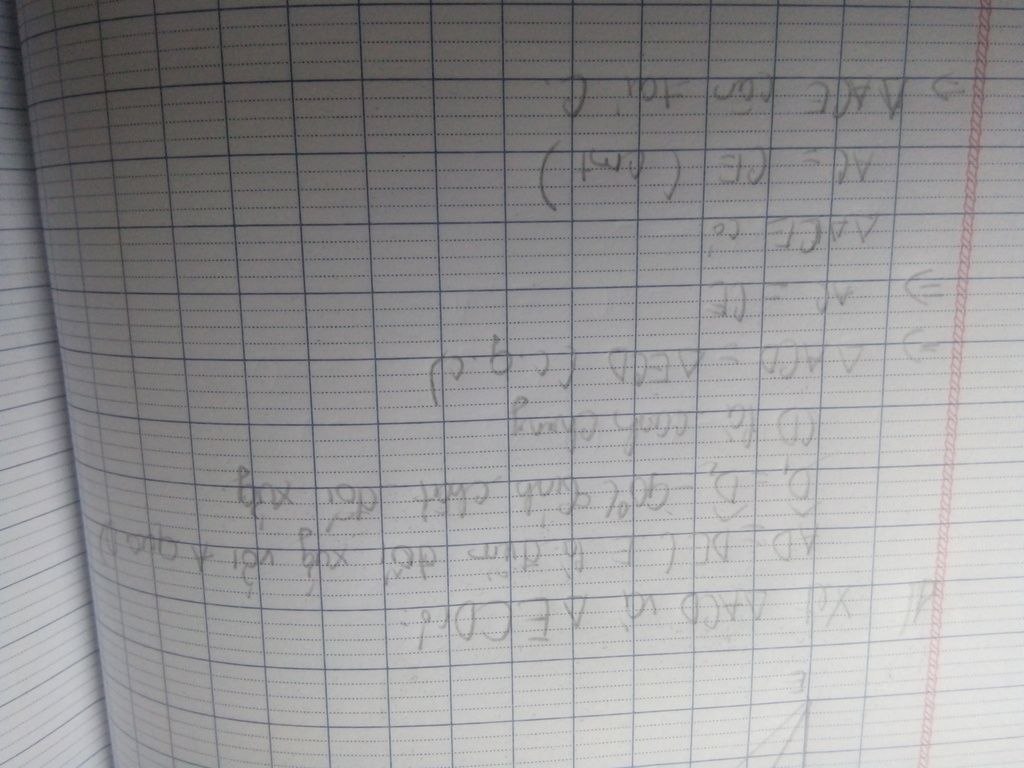 E
Xét ΔACD và ΔECD có:
AD = DE ( E là điểm đối xứng với A qua D)
D₁ = D₂ = 90° (tính chất đối xứng
CD là cạnh chung
=> ΔACD = ΔECD (c.g.c)
=> AC = CE
ΔACE có:
AC = CE (cmt)
=> ΔACE cân tại C.